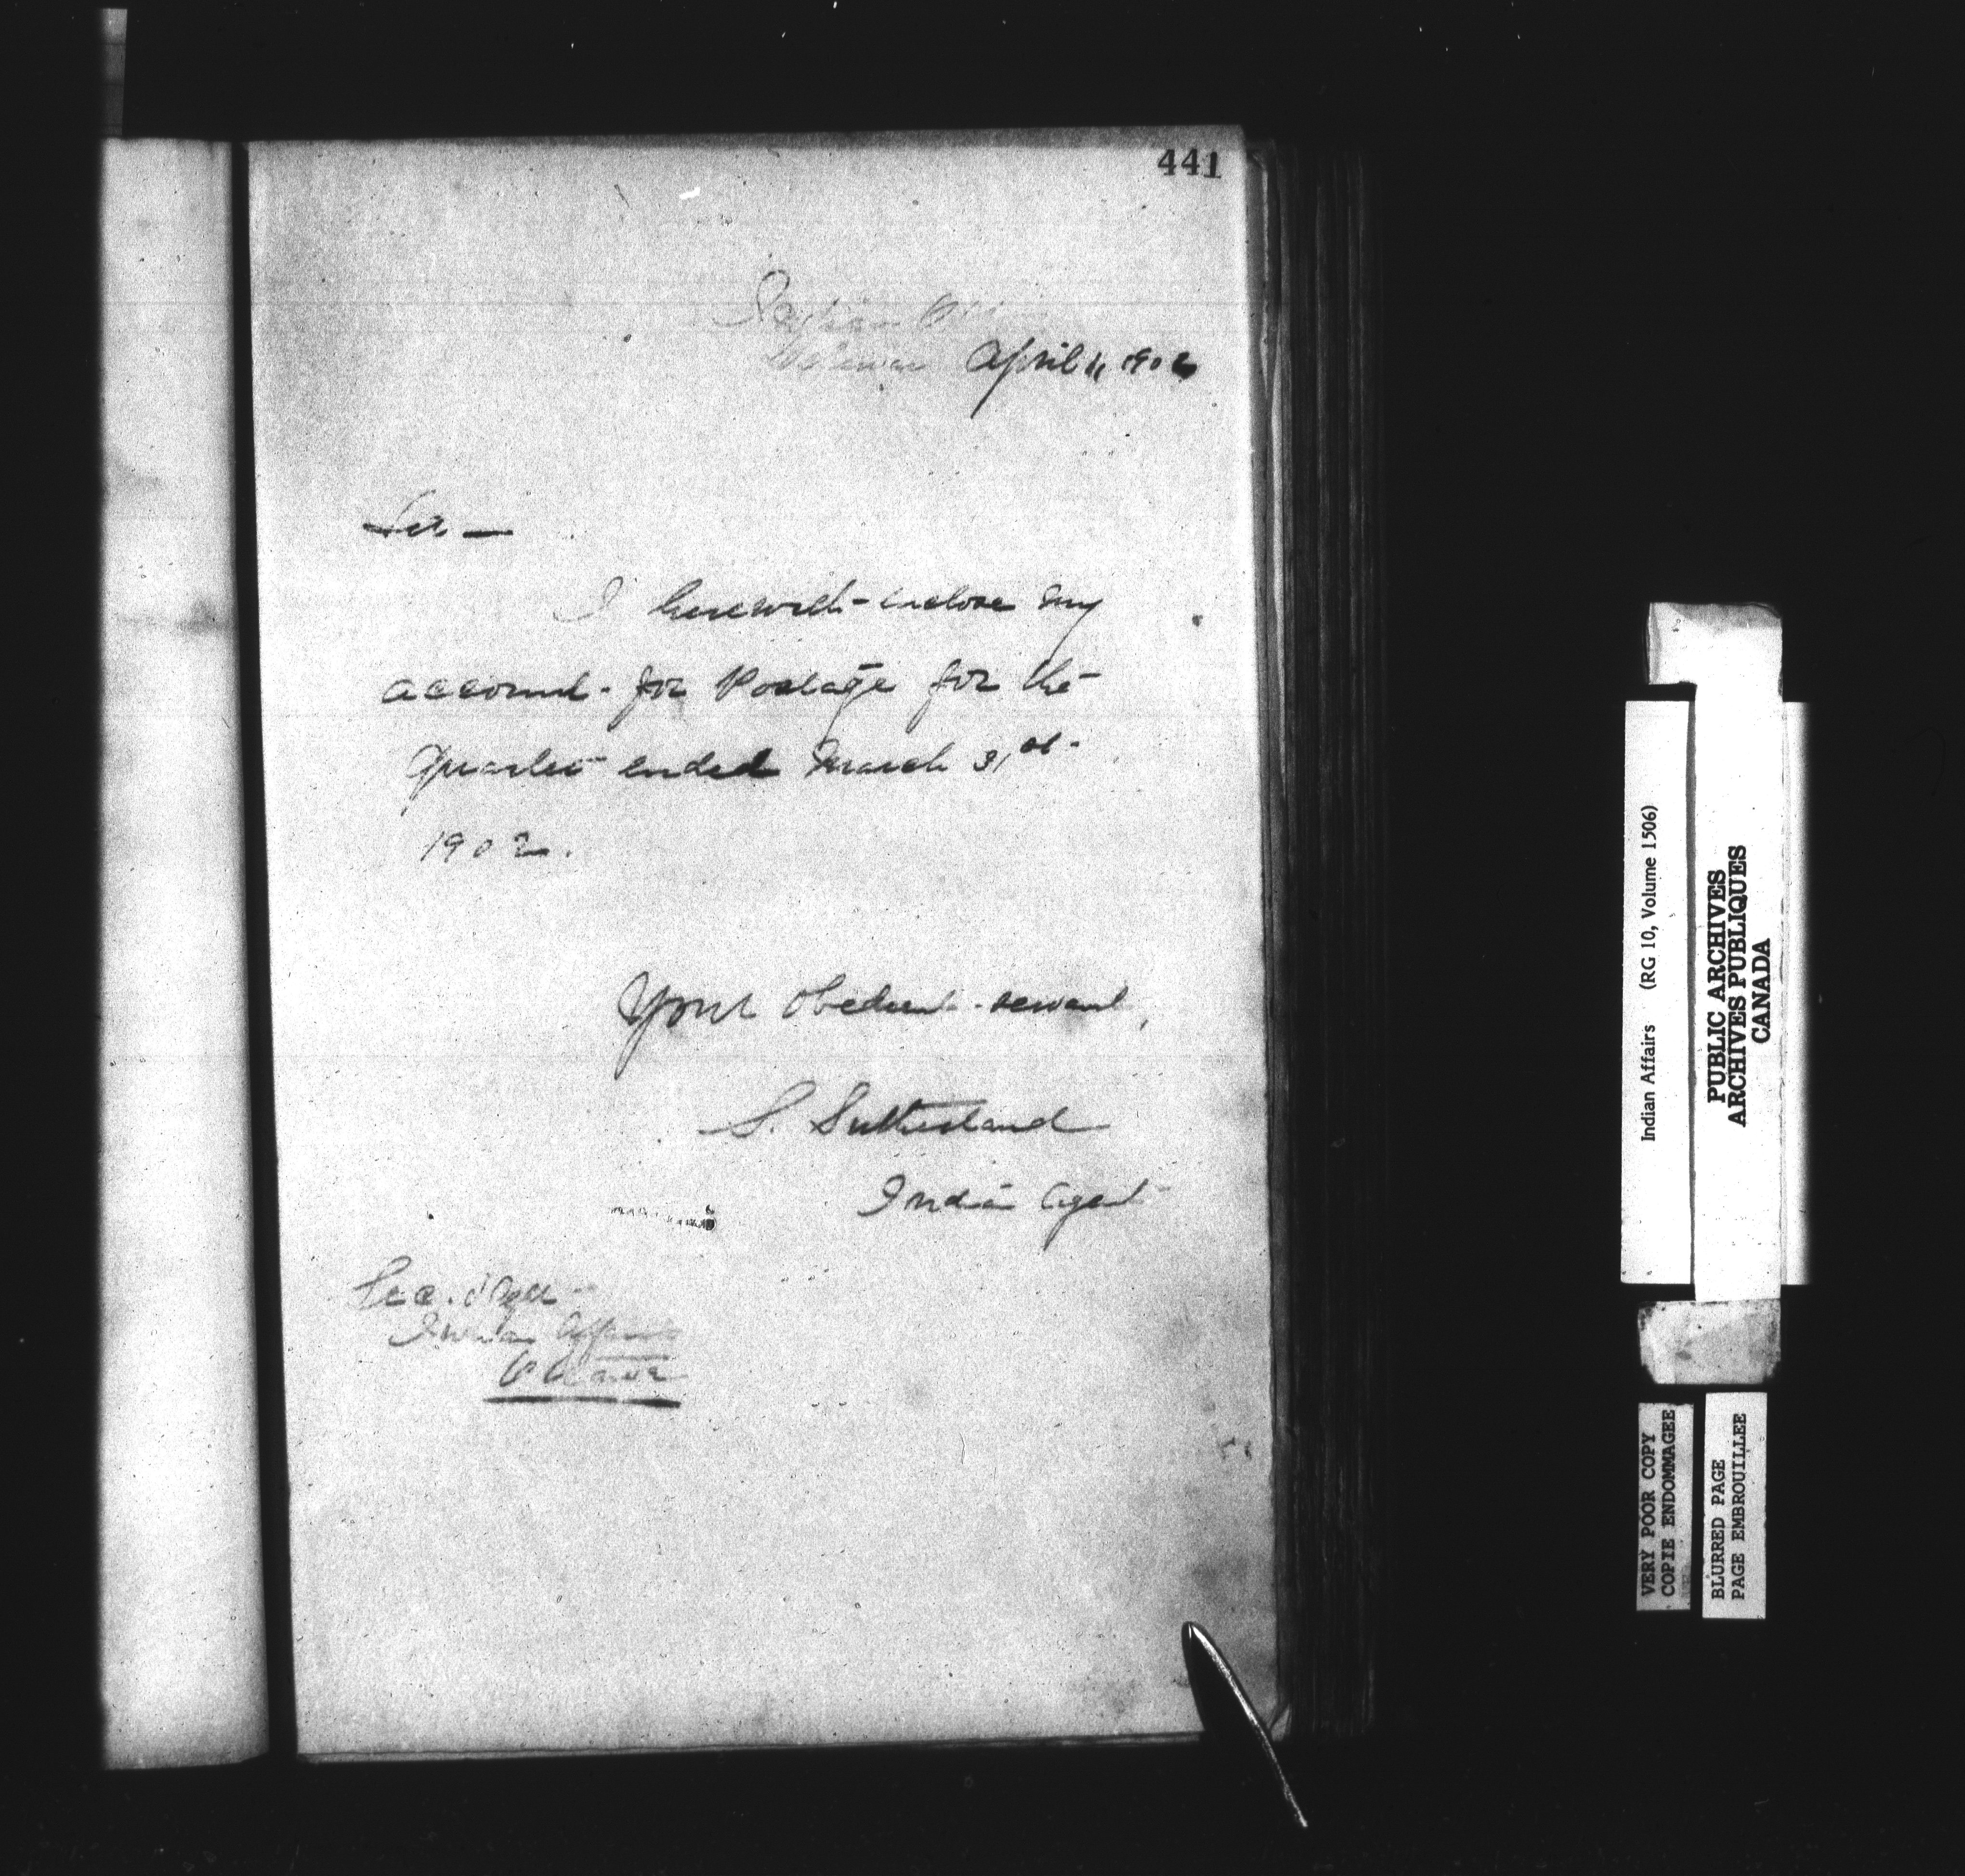 441
Indian Office
April 1902
Sir —
I herewith enclose my
account for Postage for the
Quarter ended March 31st
1902.
Your obedient servant,
S. Sutherland
Indian Agent
Sec. Dept
Indian Affairs
Ottawa
Indian Affairs (RG 10, Volume 1506)
PUBLIC ARCHIVES
ARCHIVES PUBLIQUES
CANADA
VERY POOR COPY
COPIE ENDOMMAGEE
BLURRED PAGE
PAGE EMBROUILLEE